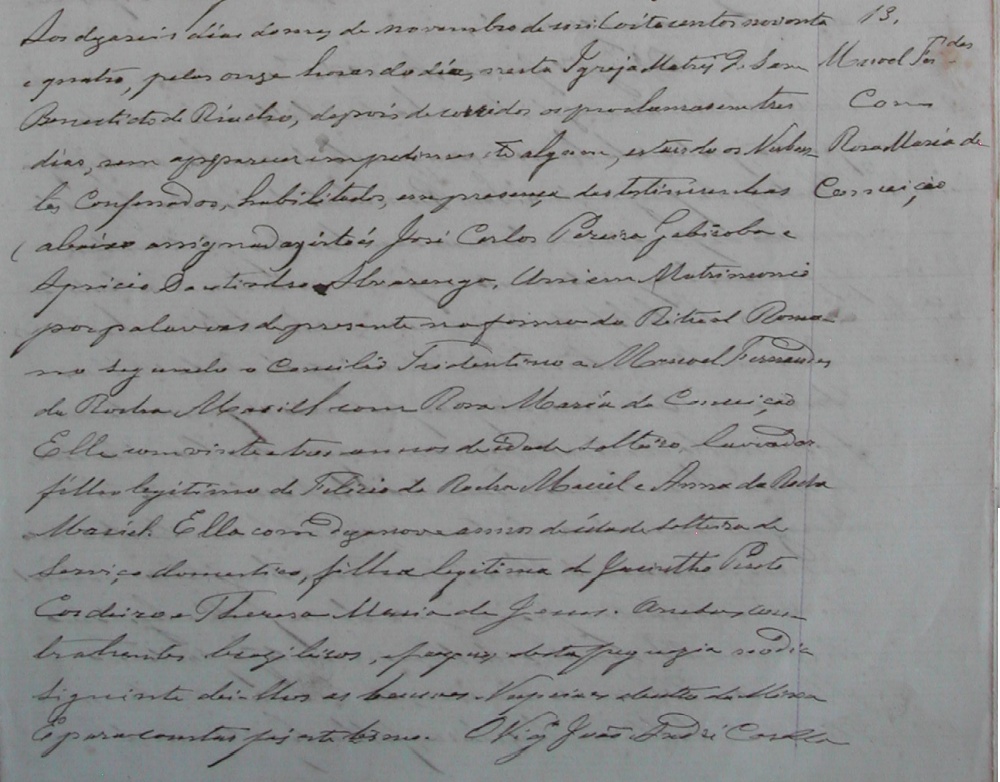 Aos dezaseis dias do mes de novembro de mil oitocentos noventa
e quatro, pelas onze horas do dia, nesta Igreja Matriz de Sam
Benedicto do Riacho, depois de corridos os proclamas em tres
dias, sem apparecer impedimento algum, estando os Nuben-
tes Confessados, habilitados, em presença das testimunhas
abaixo assignadas isto é José Carlos Pereira Gabiroba e
Apricio Alvarenga, Uniram em Matrimonio
por palavras de presente na forma do Ritual Roma-
no segundo o Concilio Tridentino a Manoel Fernandes
da Rocha Maciel com Rosa Maria da Conceição
Elle com vinte e tres annos de idade solteiro lavrador
filho legitimo de Felicio da Rocha Maciel e Anna da Rocha
Maciel. Ella com dezanove annos de idade solteira de
Serviço domestico, filha legitima de Jacintho Pinto
Cordeiro e Thereza Maria de Jesus. Ambos con-
trahentes brazileiros, e fregueses desta freguezia no dia
siguinte dei-lhes as bençoes Nupciaes dentro da Missa
E para constar fiz este termo. O Vigº João
13.
Manoel Fes
Com
Rosa Maria da
Conceição